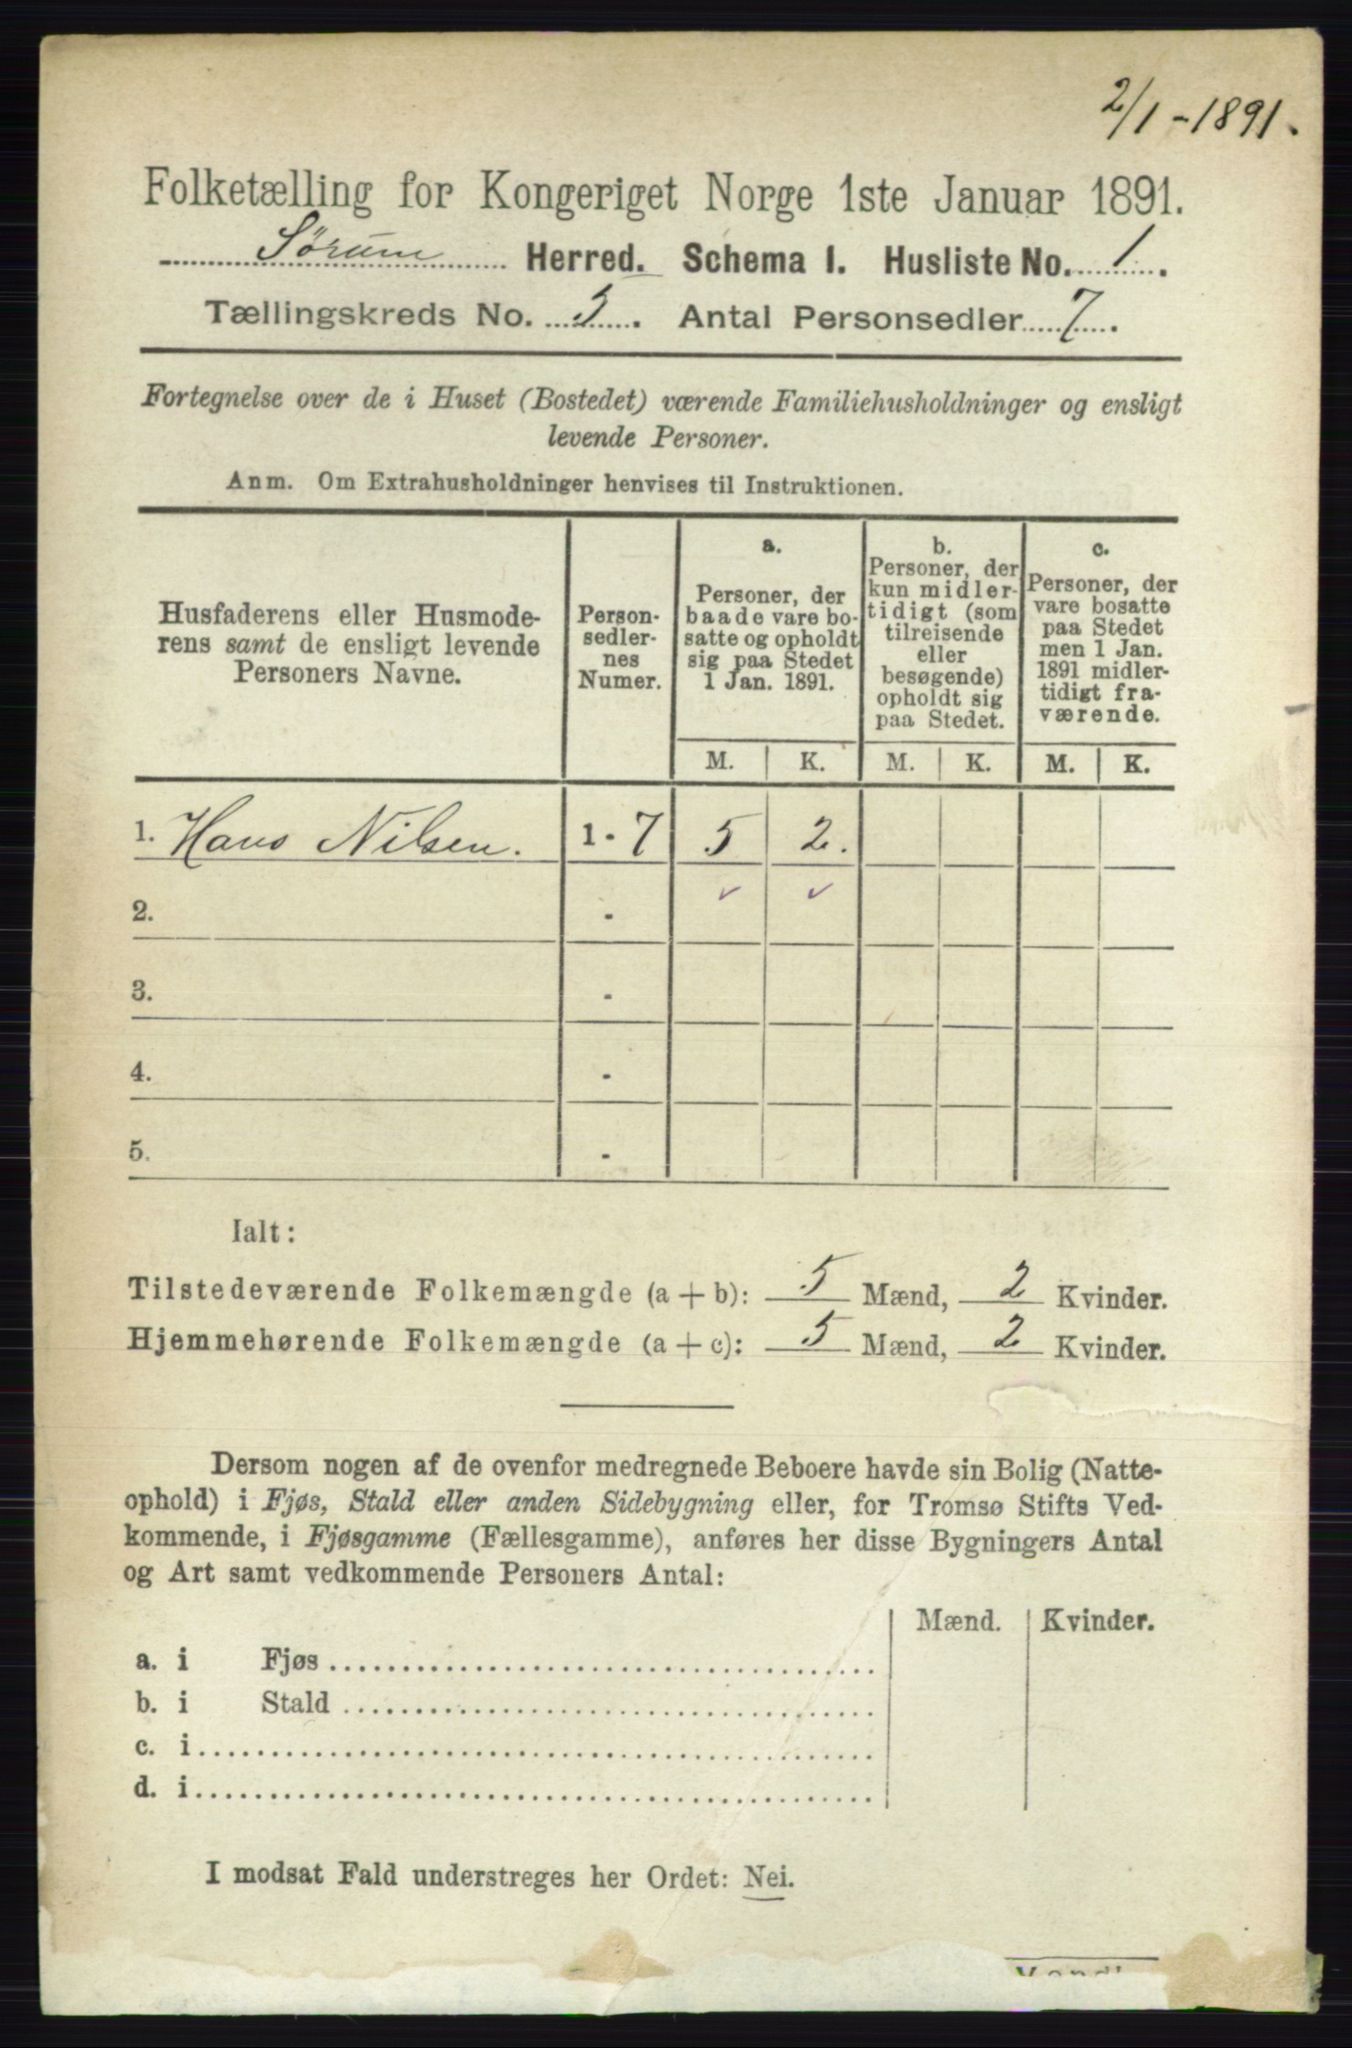 2/1 - 1891.
Folketælling for Kongeriget Norge 1ste Januar 1891.
Sørum Herred. Schema I. Husliste No. 1.
Tællingskreds No. 5. Antal Personsedler 7.
Fortegnelse over de i Huset (Bostedet) værende Familiehusholdninger og ensligt
levende Personer.
Anm. Om Extrahusholdninger henvises til Instruktionen.
Husfaderens eller Husmode-
rens samt de ensligt levende
Personers Navne.
Person-
sedler-
nes
Numer.
a.
Personer, der
baade vare bo-
satte og opholdt
sig paa Stedet
1 Jan. 1891.
b.
Personer, der
kun midler-
tidigt (som
tilreisende
eller
besøgende)
opholdt sig
paa Stedet.
c.
Personer, der
vare bosatte
paa Stedet
men 1 Jan.
1891 midler-
tidigt fra-
værende.
M. K. M. K. M. K.
1. Hans Nilsen. 1 - 7 5 2.
2. - ✓ ✓
3. -
4. -
5. -
Ialt:
Tilstedeværende Folkemængde (a + b): 5 Mænd, 2 Kvinder.
Hjemmehørende Folkemængde (a + c): 5 Mænd, 2 Kvinder.
Dersom nogen af de ovenfor medregnede Beboere havde sin Bolig (Natte-
ophold) i Fjøs, Stald eller anden Sidebygning eller, for Tromsø Stifts Ved-
kommende, i Fjøsgamme (Fællesgamme), anføres her disse Bygningers Antal
og Art samt vedkommende Personers Antal:
Mænd. Kvinder.
a. i Fjøs
b. i Stald
c. i
d. i
I modsat Fald understreges her Ordet: Nei.